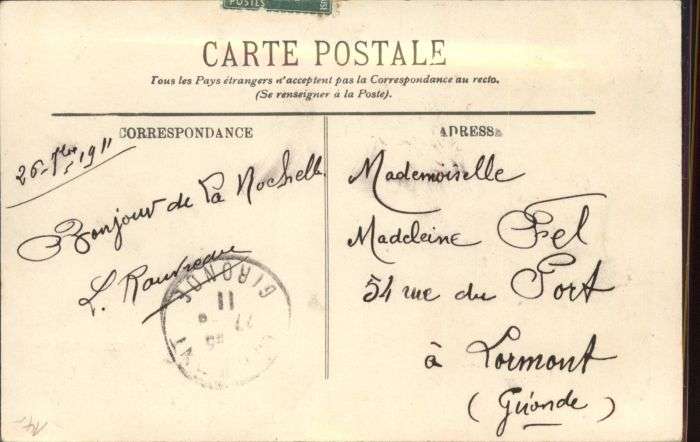 POSTES
CARTE POSTALE
Tous les Pays étrangers n'acceptent pas la Correspondance au recto.
(Se renseigner à la Poste).
CORRESPONDANCE
ADRESSE
26 - 7bre 1911
Bonjour de La Rochelle
L.
GIRONDE
11
27
Mademoiselle
Madeleine Fel
54 rue du Port
à Lormont
(Gironde)
14-